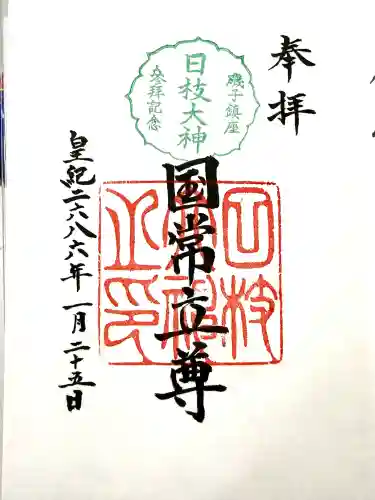 奉拝
磯子鎮座
日枝大神
参拝記念
国常立尊
日枝大神之印
皇紀二六八六年 一月二十五日